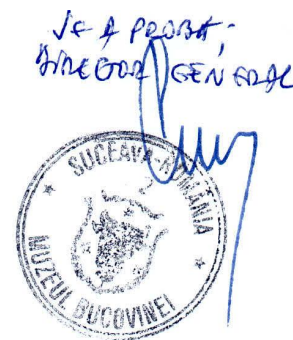 SE APROBĂ,
DIRECTOR GENERAL
SUCEAVA-ROMÂNIA
MUZEUL BUCOVINEI